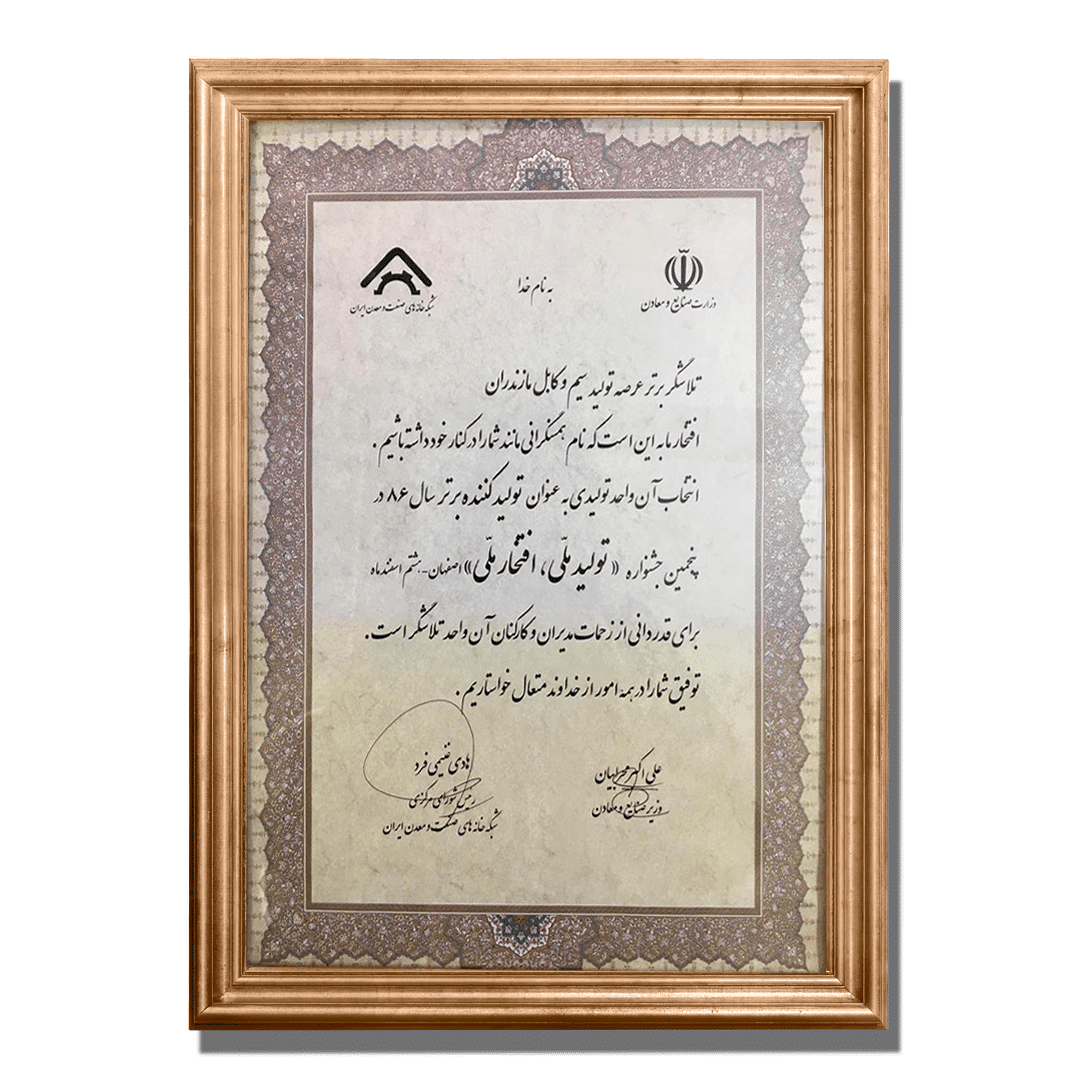 به نام خدا
وزارت صنایع و معادن
شبکه خانه های صنعت و معدن ایران
تلاشگر برتر عرصه تولید سیم و کابل مازندران
افتخار ما به این است که نام همسنگرانی مانند شما را در کنار خود داشته باشیم .
انتخاب آن واحد تولیدی به عنوان تولید کننده برتر سال ۸۶ در
پنجمین جشنواره «تولید ملّی، افتخار ملّی» اصفهان - هشتم اسفند ماه
برای قدردانی از زحمات مدیران و کارکنان آن واحد تلاشگر است .
توفیق شما را در همه امور از خداوند متعال خواستاریم .
علی اکبر محرابیان
وزیر صنایع و معادن
هادی غنیمی فرد
رییس شورای مرکزی
شبکه خانه های صنعت و معدن ایران